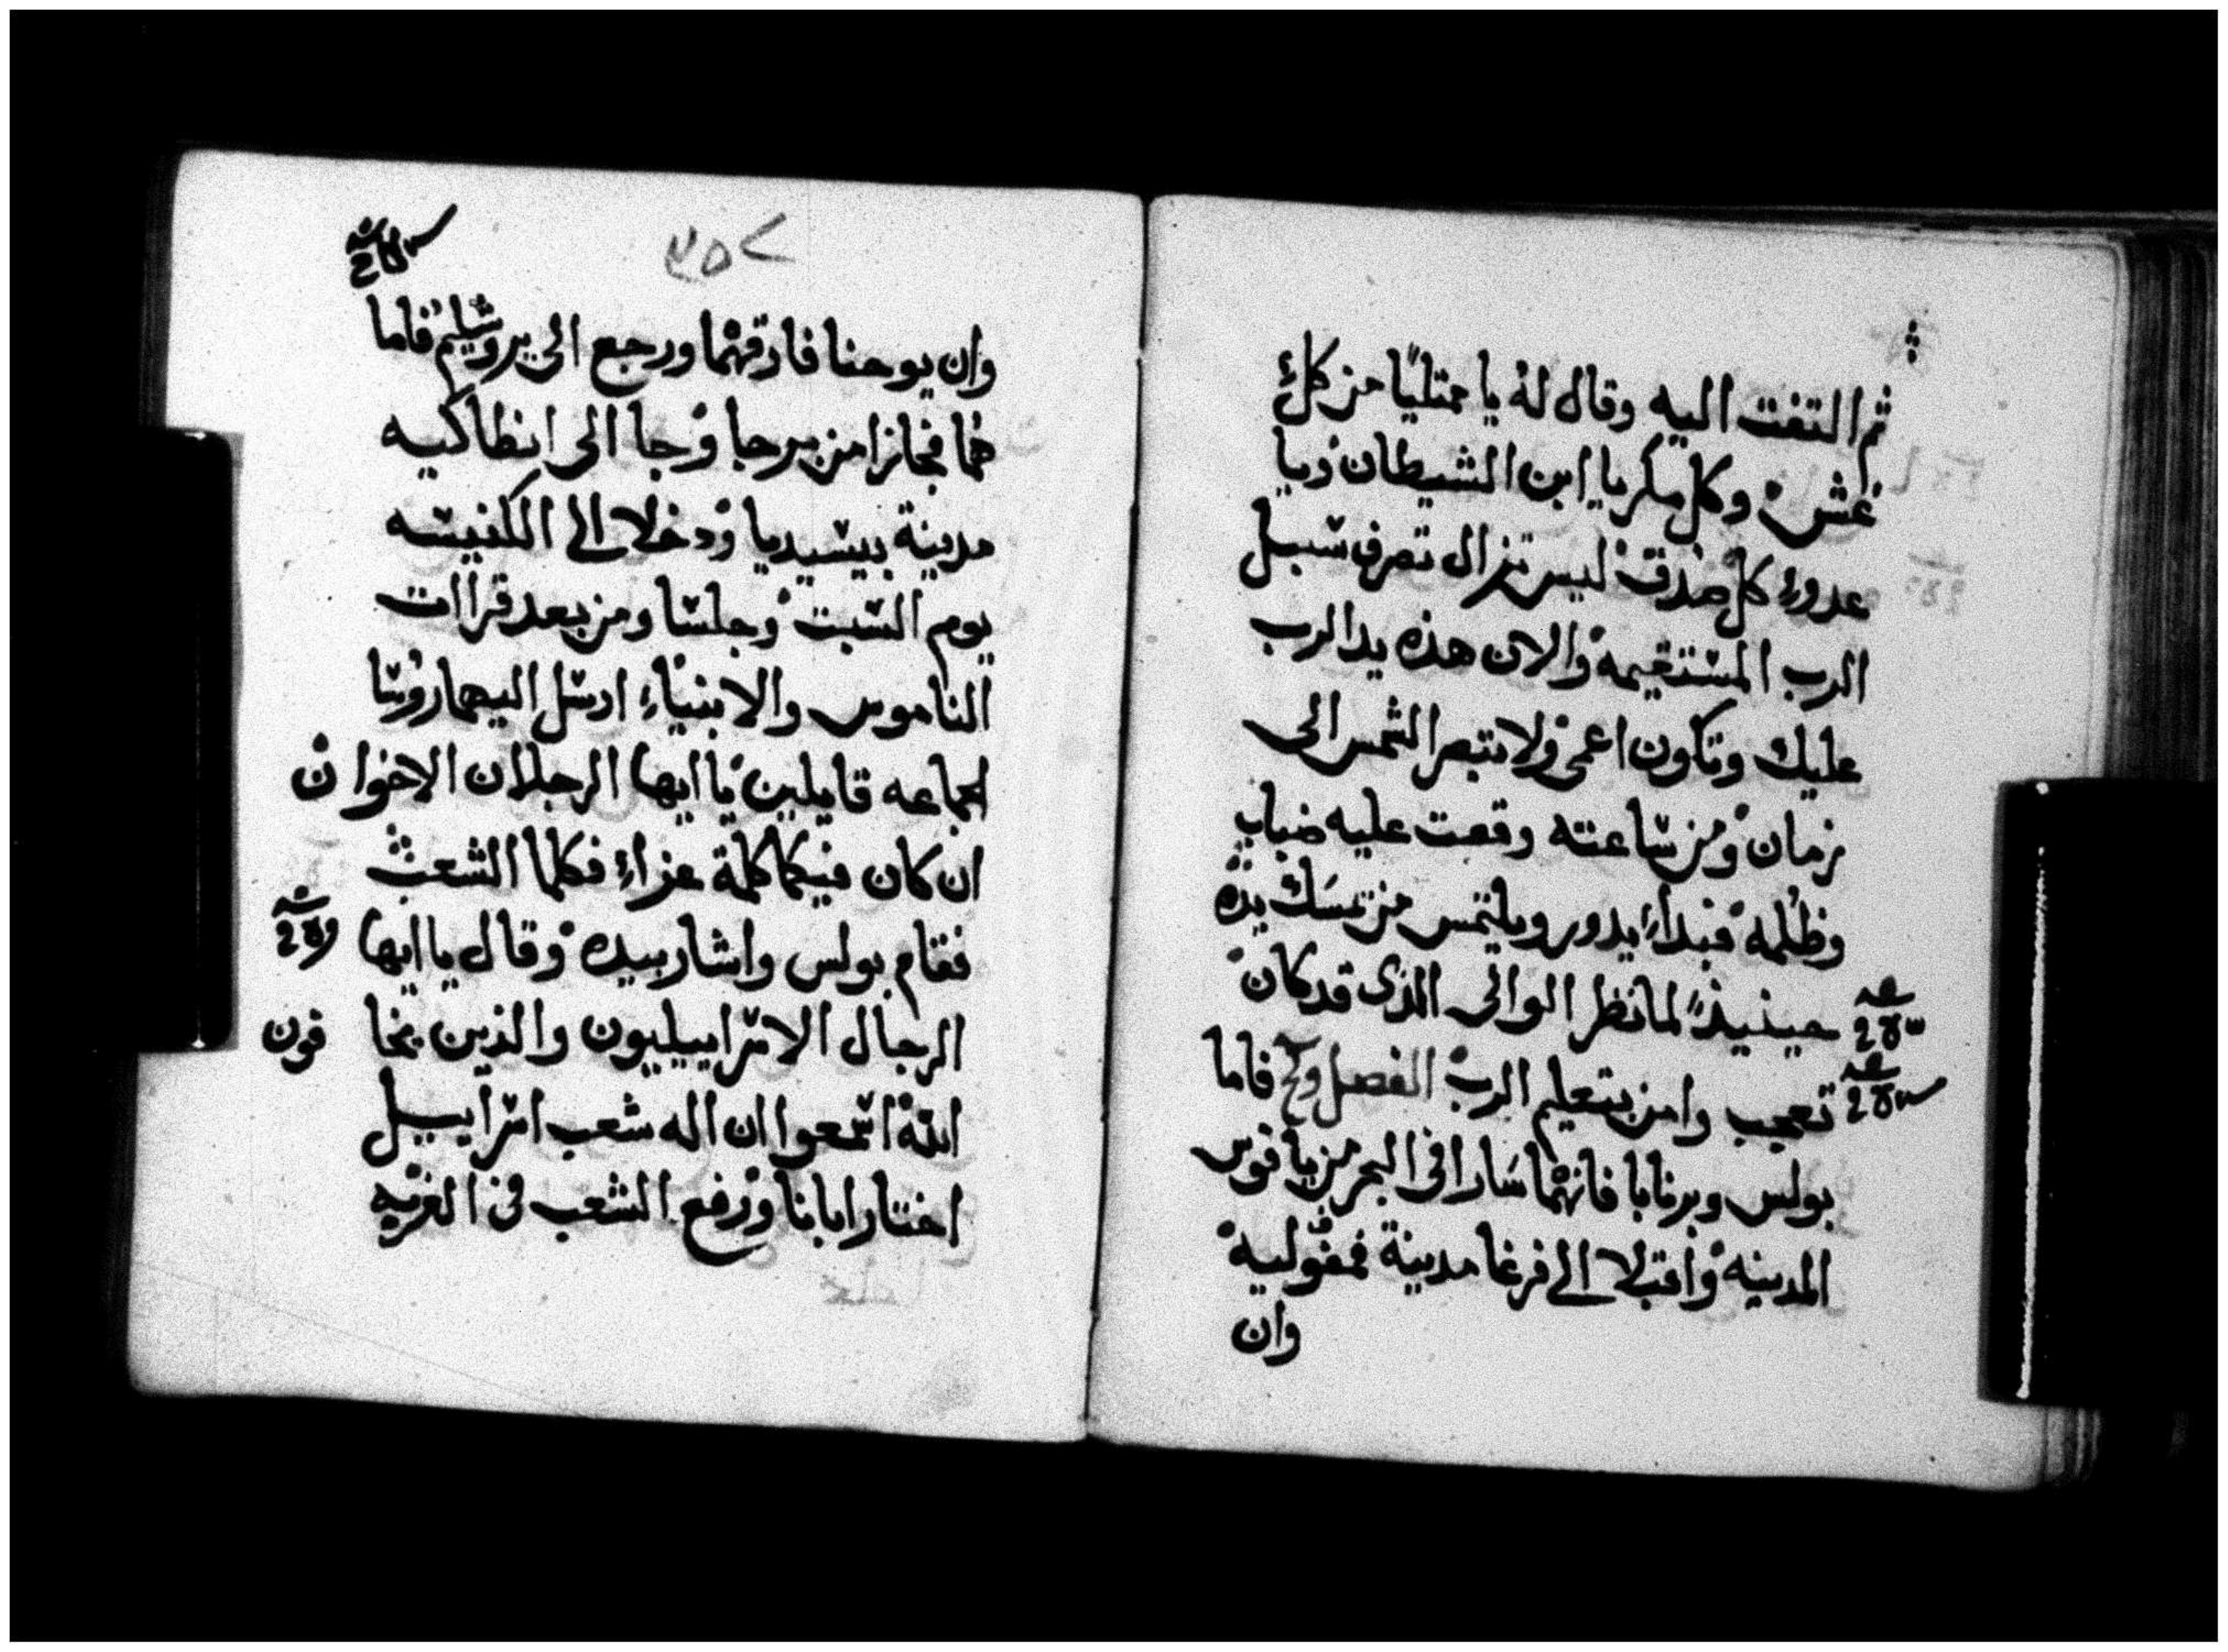 ثم التفت اليه وقال له يا ممتليًا من كل
غش وكل مكر يا ابن الشيطان ويا
عدو كل صدق ليس تزال تصرف سبيل
الرب المستقيمة والان هذه يد الرب
عليك وتكون اعمى ولا تبصر الشمس الى
زمان ومن ساعته وقعت عليه ضباب
وظلمه فبداء يدور ويلتمس من يمسك يده
حينيذً لما نظر الوالى الذى قد كان
تعجب وامن بتعليم الرب الفصل فاما
بولس وبرنابا فانهما سارا فى البحر من يافوس
المدينه واقبلا الى فرغا مدينة فمفوليه
وان
٣٥٧
وان يوحنا فارقهما ورجع الى يروشليم فاما
هما فجازا من برجا وجا الى انطاكيه
مدينة بيسيديا ودخلا الى الكنيسه
يوم السبت وجلسا ومن بعد قراات
الناموس والانبياء ارسل اليهما روسا
الجماعه قايلين يا ايها الرجلان الاخوان
ان كان فيكما كلمة عزاء فكلما الشعب
فقام بولس واشار بيده وقال يا ايها
الرجال الاسراييليون والذين يخا فون
الله اسمعوا ان اله شعب اسراييل
اختار ابانا ورفع الشعب فى الغربه